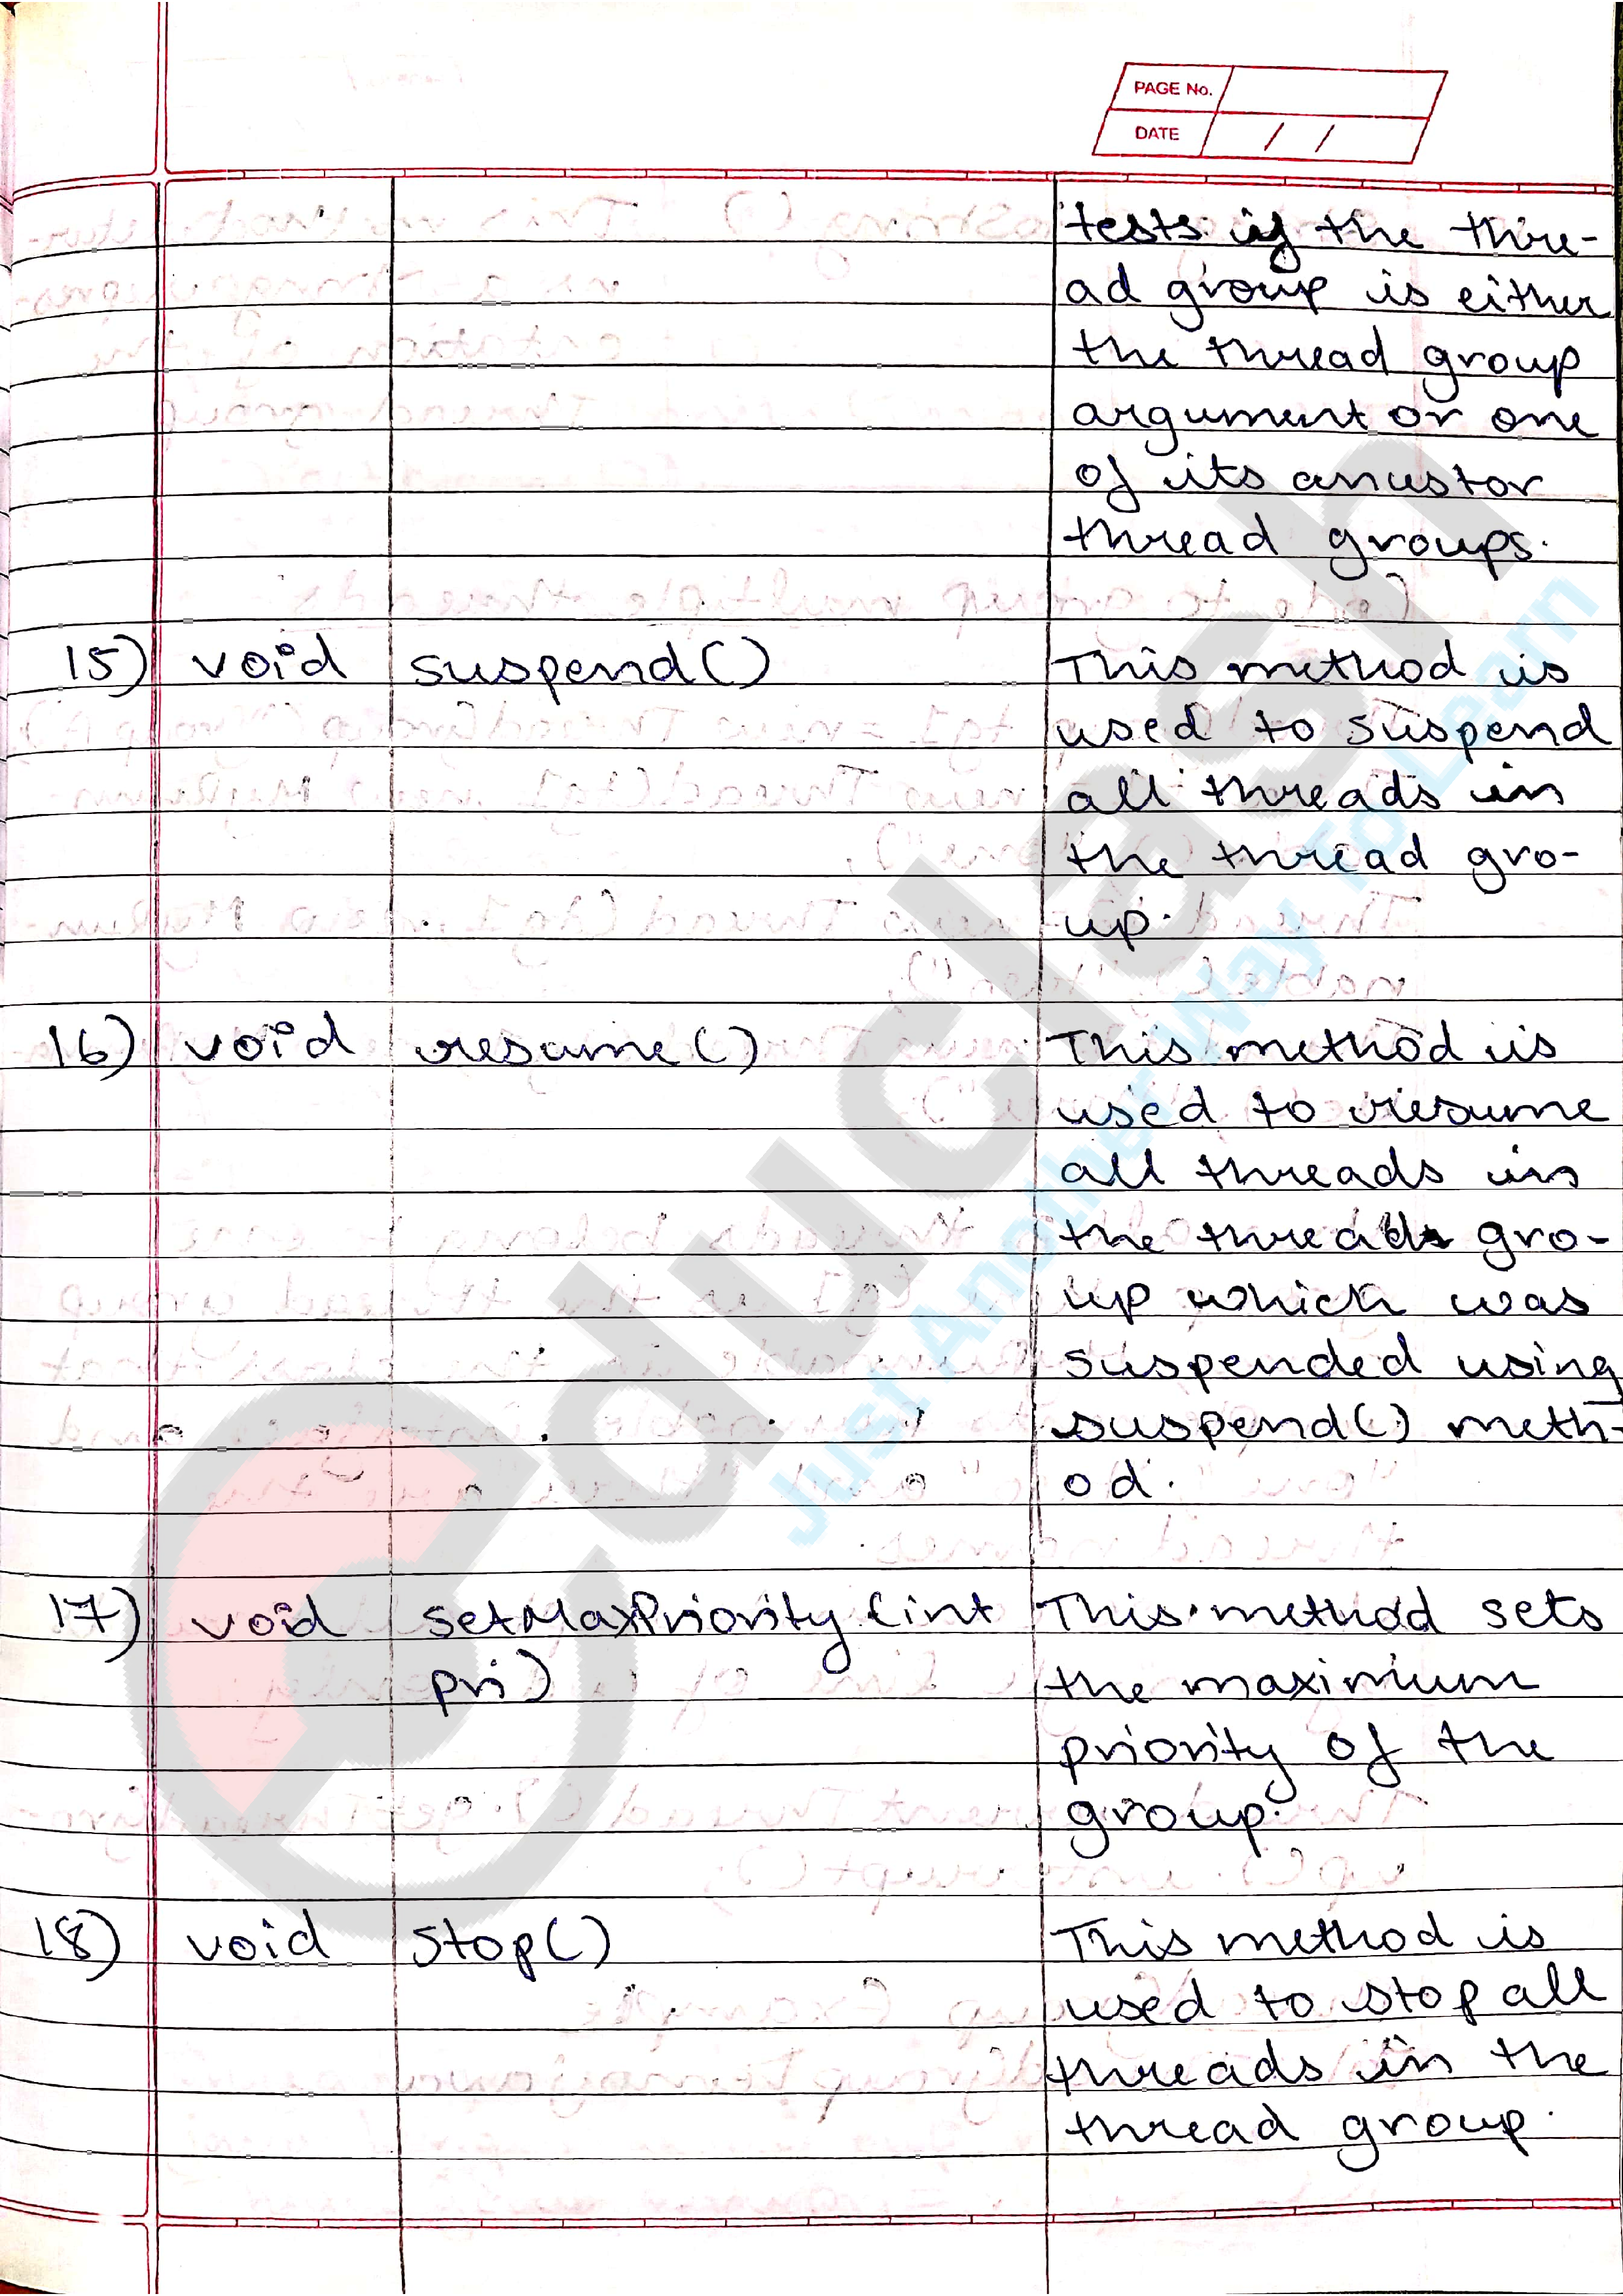 PAGE No.
DATE / /
tests if the thre-
ad group is either
the thread group
argument or one
of its ancestor
thread groups.
15) void suspend() This method is
used to suspend
all threads in
the thread gro-
up.
16) void resume() This method is
used to resume
all threads in
the thread gro-
up which was
suspended using
suspend() meth-
od.
17) void setMaxPriority (int This method sets
pri) the maximium
priority of the
group.
18) void stop() This method is
used to stop all
threads in the
thread group.
educlash
Just Another Way To Learn